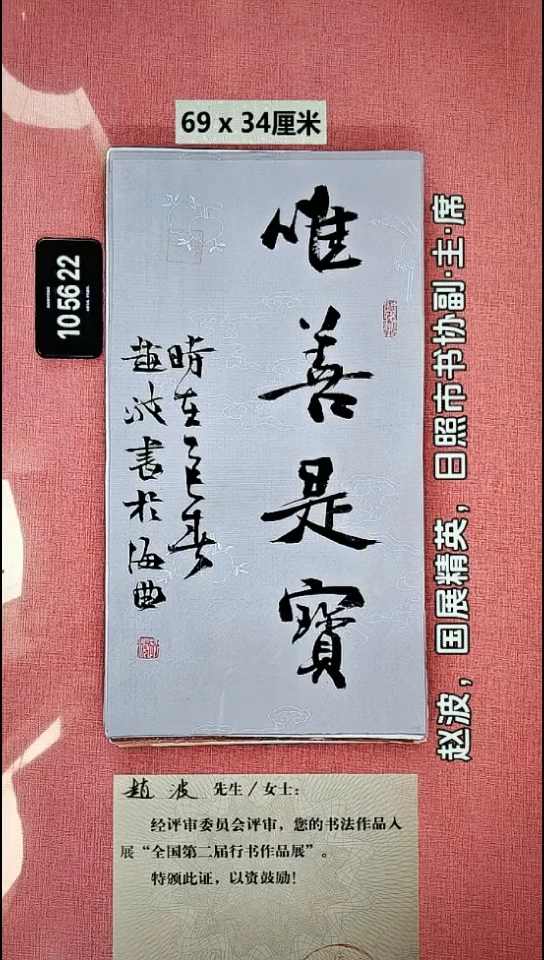 69 x 34厘米
唯善是寶
時在乙巳春
趙波書於海曲
10 56 22
赵波，国展精英，日照市书协副·主·席
趙波 先生／女士：
经评审委员会评审，您的书法作品入
展“全国第二届行书作品展”。
特颁此证，以资鼓励！